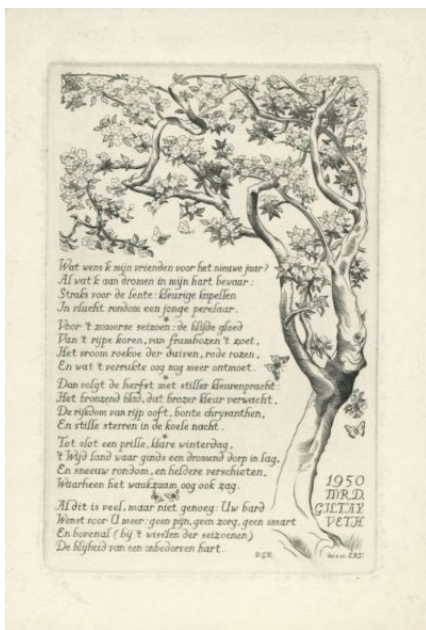 Wat wens 'k mijn vrienden voor het nieuwe jaar?
Al wat 'k aan dromen in mijn hart bewaar:
Straks voor de lente: kleurige kapellen
In vlucht rondom een jonge perelaar.
Voor 't zomerse seizoen: de blijde gloed
Van 't rijpe koren, van frambozen 't zoet,
Het vroom roekoe der duiven, rode rozen,
En wat 't verrukte oog nog meer ontmoet.
Dan volgt de herfst met stiller kleurenpracht:
Het bronzend blad, dat brozer kleur verwacht,
De rijkdom van rijp ooft, bonte chrysanthen,
En stille sterren in de koele nacht.
Tot slot een prille, klare winterdag,
't Wijd land waar ginds een dromend dorp in lag,
En sneeuw rondom, en heldere verschieten,
Waarheen het waakzaam oog ook zag.
Al dit is veel, maar niet genoeg: Uw bard
Wenst voor U meer: geen pijn, geen zorg, geen smart
En bovenal (bij 't wiselen der seizoenen)
De blijheid van een onbedorven hart.
1950
MR.D.
GILTAY
VETH
D.G.V.